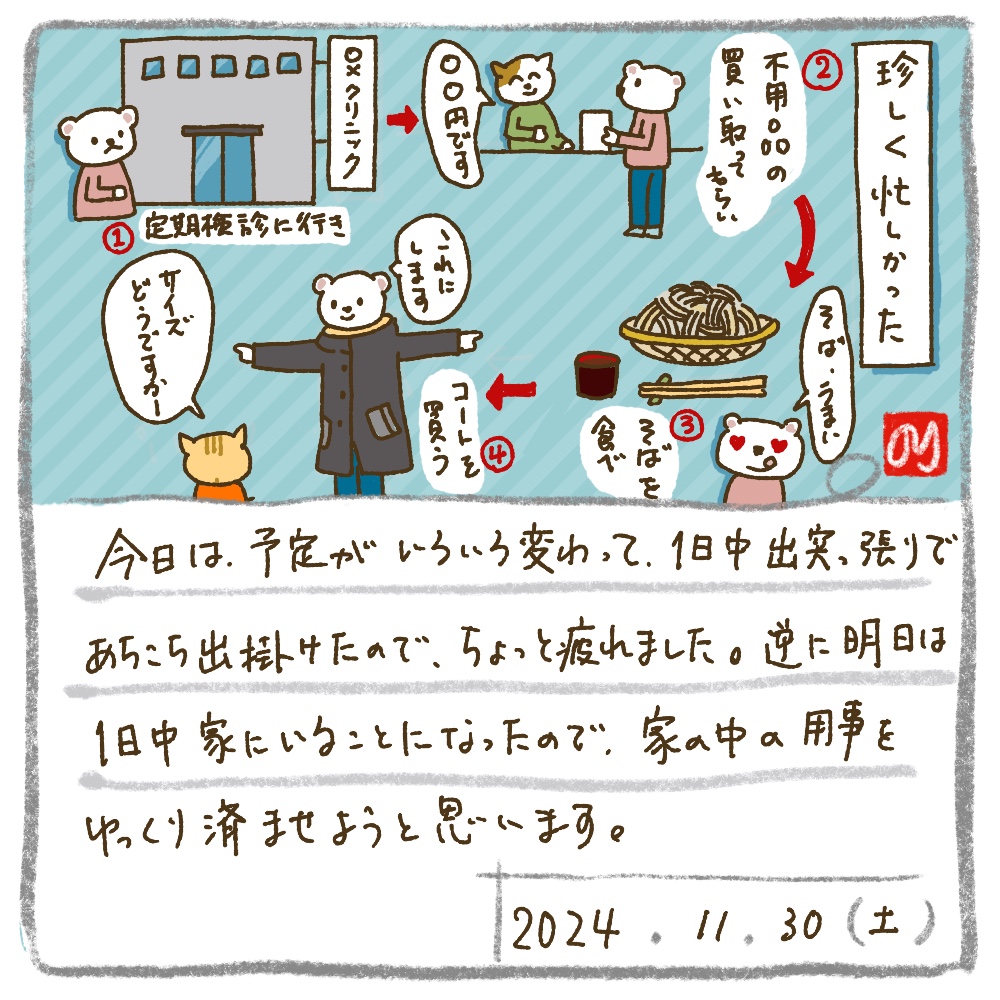 珍しく忙しかった
○×クリニック
①
定期検診に行き
○○円です
②
不用品の
買い取って
もらい
そば、うまい
③
そばを
食べ
④
コートを
買う
これに
します
サイズ
どうですかー
のり
今日は、予定がいろいろ変わって、1日中出突っ張りで
あちこち出掛けたので、ちょっと疲れました。逆に明日は
1日中家にいることになったので、家の中の用事を
ゆっくり済ませようと思います。
2024.11.30(土)